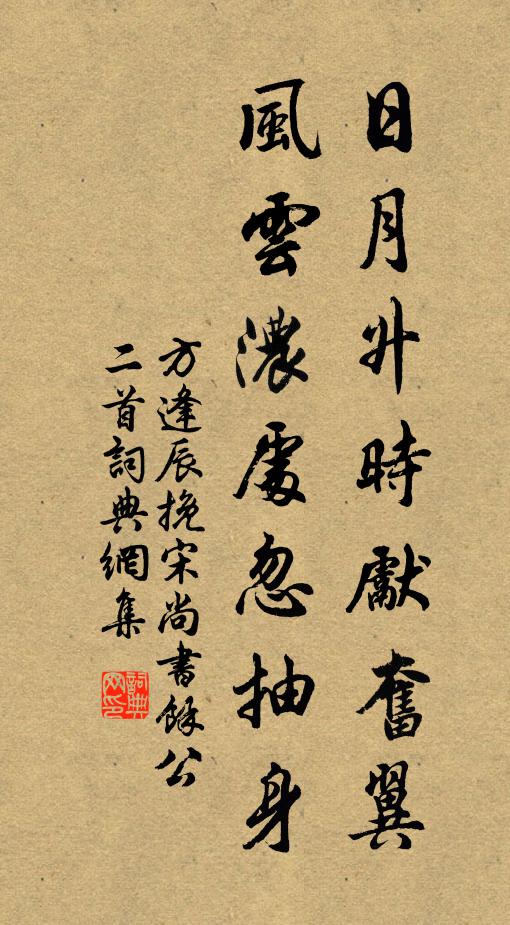 日月升時獻奮翼
風雲濃處忽抽身
方逢辰挽宋尚書餘公
二首詞典網集
詞典
网印